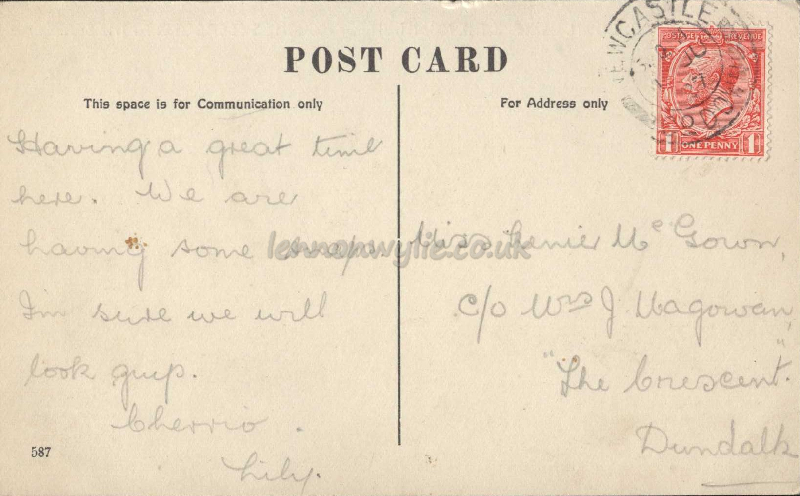 NEWCASTLE
CO. DOWN
POSTAGE REVENUE
ONE PENNY
POST CARD
This space is for Communication only
For Address only
Having a great time
here. We are
having some snaps
I'm sure we will
look
Cherrio.
Lily.
587
lennonwylie.co.uk
Miss Mc Gown,
c/o Mrs J Magowan,
"The Crescent".
Dundalk